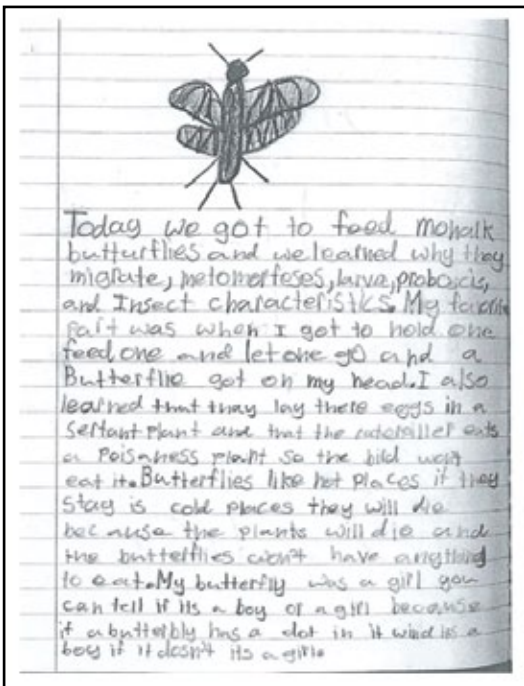 Today we got to feed mohalk
butturflies and we learned why they
migrate, metomorfeses, larva, proboscis,
and Insect characteristics. My favorite
part was when I got to hold one
feed one and let one go and a
Butterflie got on my head. I also
learned that thay lay there eggs in a
sertant plant and that the catepiller eats
a Poisaness plant so the bild won't
eat it. Butterflies like hot places if they
stay is cold places they will die
because the plants will die and
the butterflies won't have anything
to eat. My butterfly was a girl you
can tell if its a boy or a girl because
if a butterbly has a dot in it wind its a
boy if it dosn't its a girl.